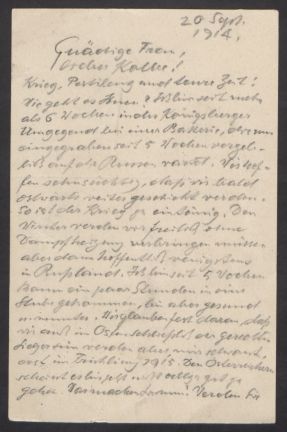 20 Sept.
1914.
Gnädige Frau,
lieber Kolbe!
Krieg, Pestilenz und teure Zeit!
Wie geht es Ihnen? Ich bin seit mehr
als 6 Wochen in der Königsberger
Umgegend bei einer Batterie, die nun
eingegraben seit 5 Wochen vergeb-
lich auf die Russen wartet. Wir hof-
fen sehnsüchtig, daß wir bald
ostwärts weiter geschickt werden.
So ist der Krieg zu eintönig. Den
Winter werden wir freilich ohne
Dampfheizung verbringen müssen
aber dann hoffentlich wenigstens
in Rußland. Ich bin seit 5 Wochen
kaum ein paar Stunden in eine
Stube gekommen, bin aber gesund
und munter. Wir glauben fest daran, daß
wir auch im Osten schließlich die
Sieger sein werden aber
erst im Frühling 1915. Den Österreichern
scheint es bis jetzt nicht allzu gut zu
gehen. Was machen